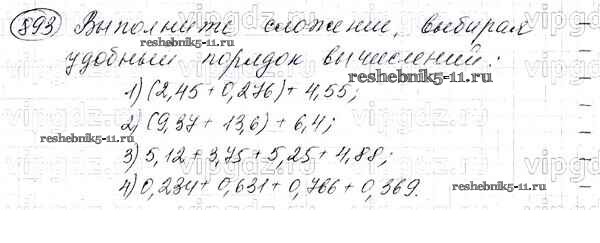 893 Выполните сложение, выбирая
удобный порядок вычислений:
1) (2,45 + 0,276) + 4,55;
2) (9,37 + 13,6) + 6,4;
3) 5,12 + 3,75 + 5,25 + 4,88;
4) 0,234 + 0,631 + 0,766 + 0,369.
reshebnik5-11.ru
reshebnik5-11.ru
reshebnik5-11.ru
reshebnik5-11.ru
vipgdz.ru